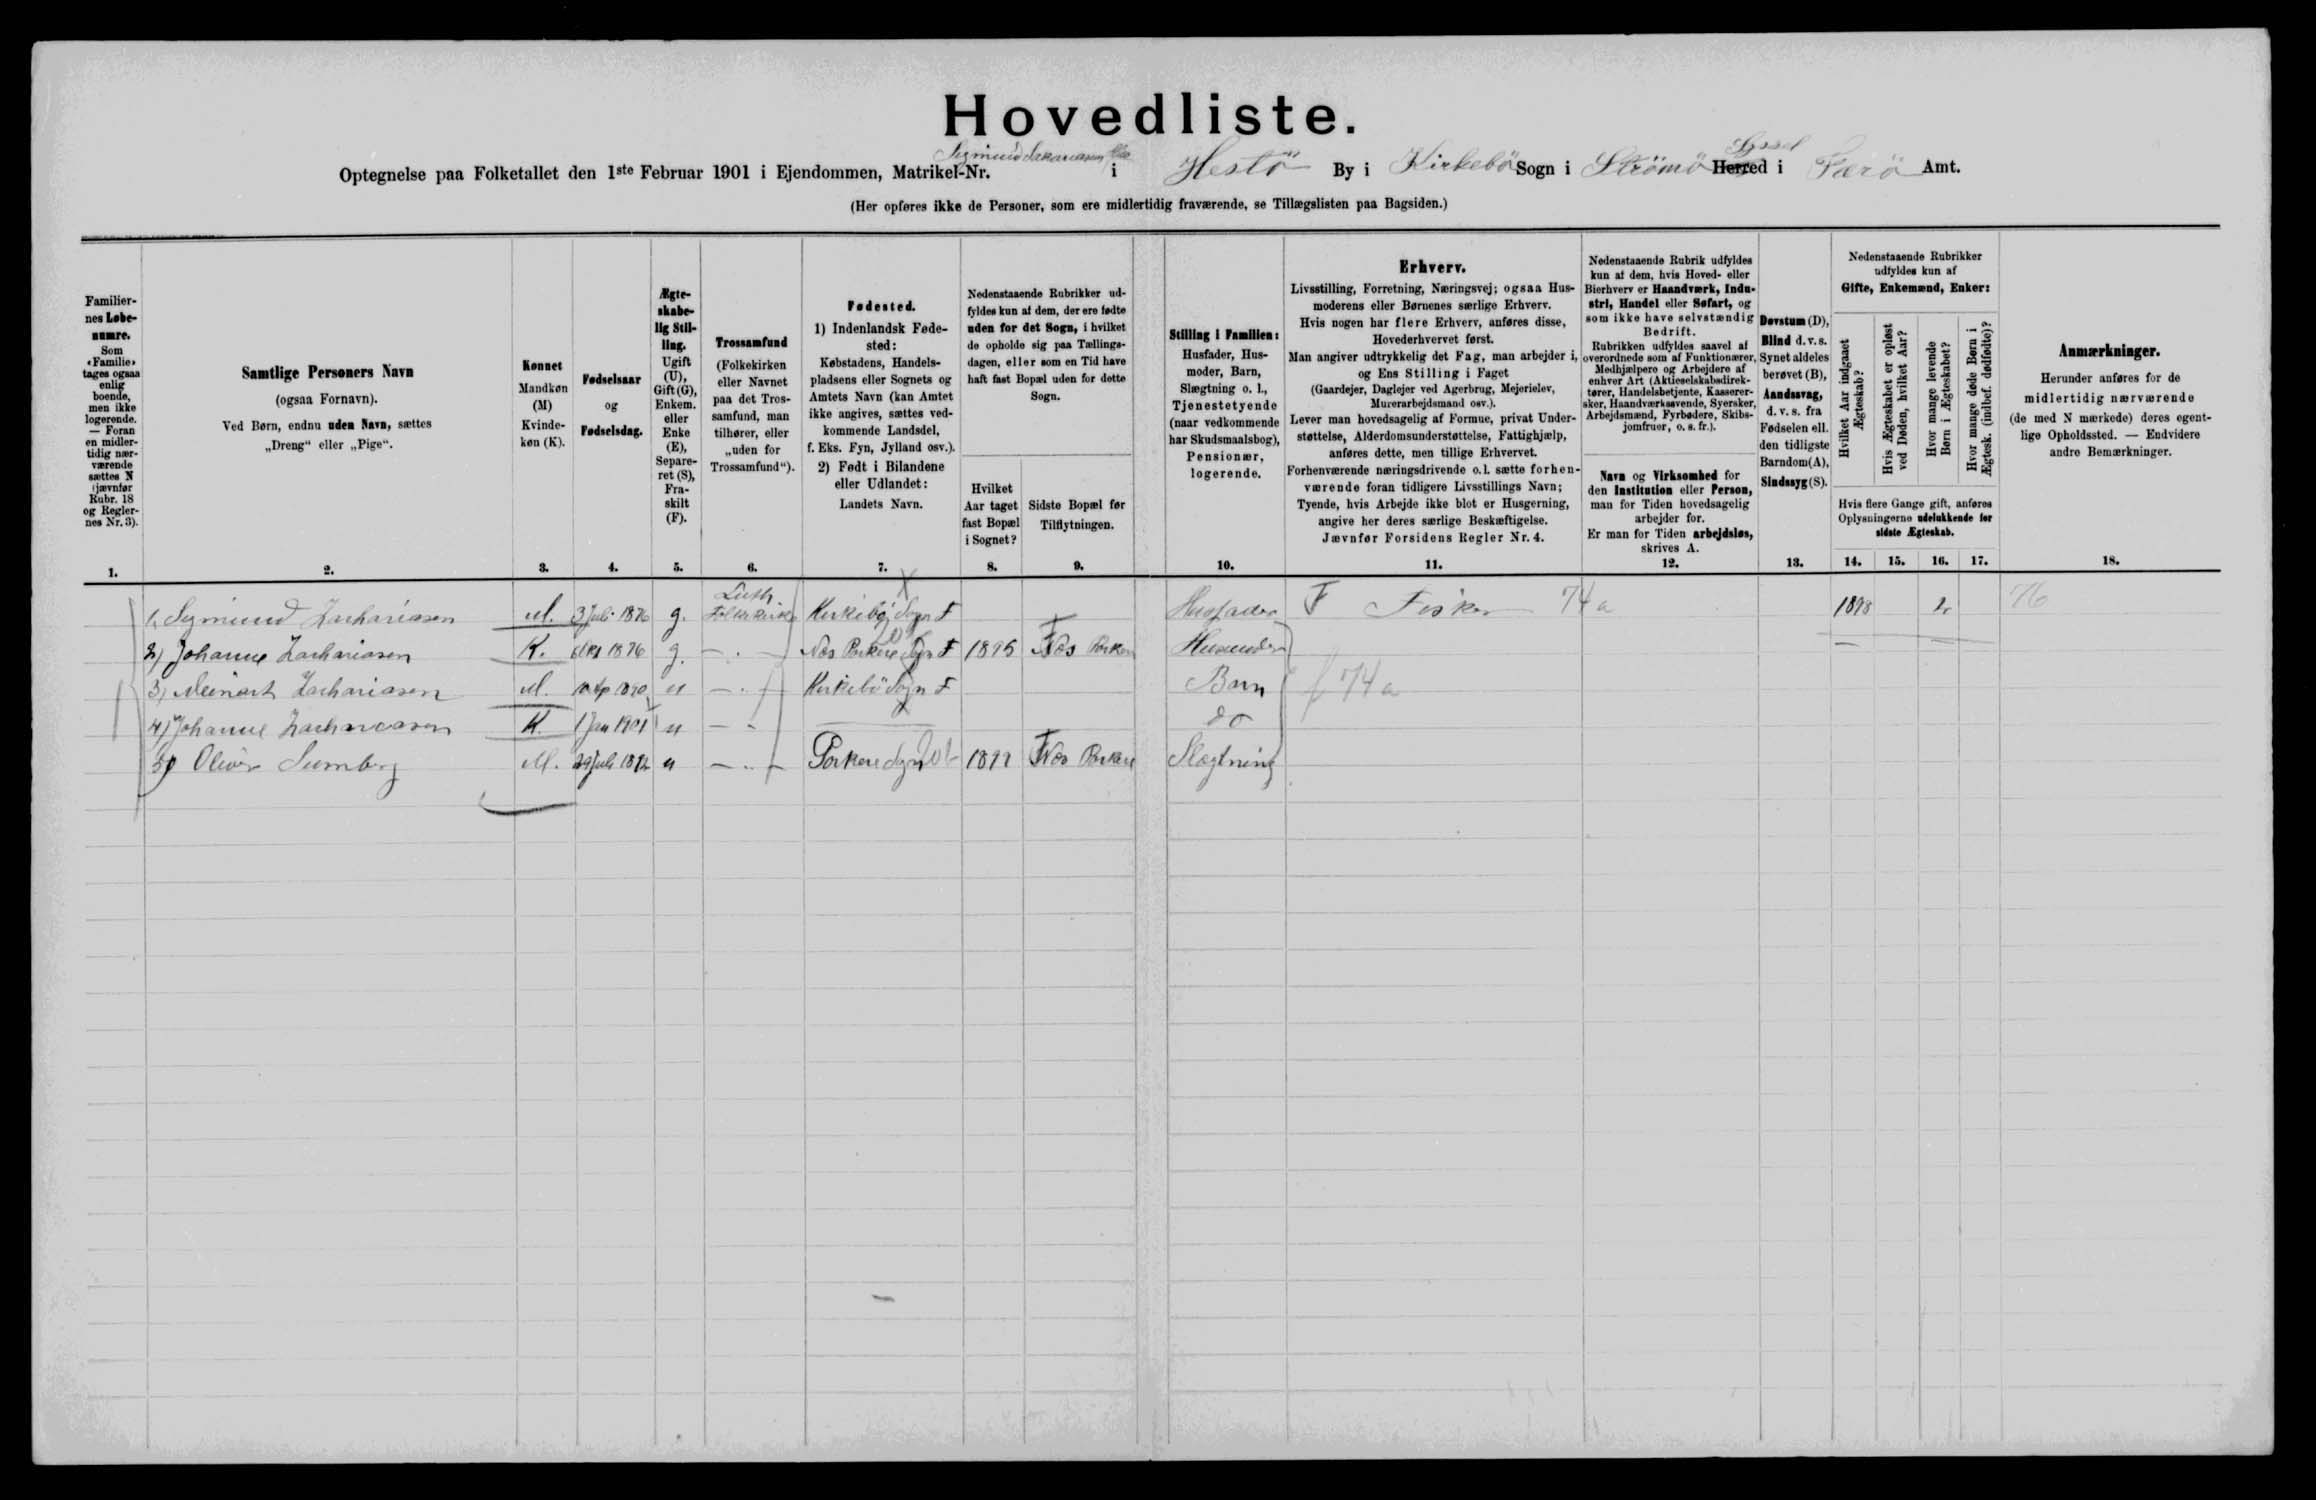 Hovedliste.
Optegnelse paa Folketallet den 1ste Februar 1901 i Ejendommen, Matrikel-Nr. Sigmund Zakariasen i Hestö By i Kirkebö Sogn i Strömö Herred Syssel i Færö Amt.
(Her opføres ikke de Personer, som ere midlertidig fraværende, se Tillægslisten paa Bagsiden.)
Familiernes Løbenumre.
Som «Familie» tages ogsaa enlig boende, men ikke logerende. — Foran en midlertidig nærværende sættes N (jævnfør Rubr. 18 og Reglernes Nr. 3).
1.
Samtlige Personers Navn
(ogsaa Fornavn).
Ved Børn, endnu uden Navn, sættes
„Dreng“ eller „Pige“.
2.
Kønnet
Mandkøn (M)
Kvindekøn (K).
3.
Fødselsaar
og
Fødselsdag.
4.
Ægteskabelig Stilling.
Ugift (U), Gift (G), Enkem. eller Enke (E), Separeret (S), Fraskilt (F).
5.
Trossamfund
(Folkekirken eller Navnet paa det Trossamfund, man tilhører, eller „uden for Trossamfund“).
6.
Fødested.
1) Indenlandsk Fødested:
Købstadens, Handelspladsens eller Sognets og Amtets Navn (kan Amtet ikke angives, sættes vedkommende Landsdel, f. Eks. Fyn, Jylland osv.).
2) Født i Bilandene eller Udlandet:
Landets Navn.
7.
Nedenstaaende Rubrikker udfyldes kun af dem, der ere fødte uden for det Sogn, i hvilket de opholde sig paa Tællingsdagen, eller som en Tid have haft fast Bopæl uden for dette Sogn.
Hvilket Aar taget fast Bopæl i Sognet?
8.
Sidste Bopæl før Tilflytningen.
9.
Stilling i Familien:
Husfader, Husmoder, Barn, Slægtning o. l., Tjenestetyende (naar vedkommende har Skudsmaalsbog), Pensionær, logerende.
10.
Erhverv.
Livsstilling, Forretning, Næringsvej; ogsaa Husmoderens eller Børnenes særlige Erhverv.
Hvis nogen har flere Erhverv, anføres disse, Hovederhvervet først.
Man angiver udtrykkelig det Fag, man arbejder i, og Ens Stilling i Faget
(Gaardejer, Daglejer ved Agerbrug, Mejerielev, Murerarbejdsmand osv.).
Lever man hovedsagelig af Formue, privat Understøttelse, Alderdomsunderstøttelse, Fattighjælp, anføres dette, men tillige Erhvervet.
Forhenværende næringsdrivende o. l. sætte forhenværende foran tidligere Livsstillings Navn;
Tyende, hvis Arbejde ikke blot er Husgerning, angive her deres særlige Beskæftigelse.
Jævnfør Forsidens Regler Nr. 4.
11.
Nedenstaaende Rubrik udfyldes kun af dem, hvis Hoved- eller Bierhverv er Haandværk, Industri, Handel eller Søfart, og som ikke have selvstændig Bedrift.
Rubrikken udfyldes saavel af overordnede som af Funktionærer, Medhjælpere og Arbejdere af enhver Art (Aktieselskabsdirektører, Handelsbetjente, Kasserersker, Haandværkssvende, Syersker, Arbejdsmænd, Fyrbødere, Skibsjomfruer, o. s. fr.).
Navn og Virksomhed for den Institution eller Person, man for Tiden hovedsagelig arbejder for.
Er man for Tiden arbejdsløs, skrives A.
12.
Døvstum (D), Blind d. v. s. Synet aldeles berøvet (B), Aandssvag, d. v. s. fra Fødselen ell. den tidligste Barndom (A), Sindssyg (S).
13.
Nedenstaaende Rubrikker udfyldes kun af
Gifte, Enkemænd, Enker:
Hvilket Aar indgaaet Ægteskab?
Hvis Ægteskabet er opløst ved Døden, hvilket Aar?
Hvor mange levende Børn i Ægteskabet?
Hvor mange døde Børn i Ægtesk. (indbef. dødfødte)?
Hvis flere Gange gift, anføres Oplysningerne udelukkende for sidste Ægteskab.
14. 15. 16. 17.
Anmærkninger.
Herunder anføres for de midlertidig nærværende (de med N mærkede) deres egentlige Opholdssted. — Endvidere andre Bemærkninger.
18.
1, Sigmund Zachariasen M. 3 Juli 1876 g. Luth. Folkekirke Kirkebö Sogn F Husfader F Fisker 74 a 1898 2 76
2) Johanne Zachariasen K. 1876 g. Nœs Porkere Sogn F 1895 Nœs Porkere Husmoder
3) Meinart Zachariasen M. u Kirkebö Sogn F Barn f 74 a
4) Johanne Zachariasen K. 1 Jan 1901 u do
5) Oliver Sumberg M. 29 Juli u Porkere Sogn Nœs Porkere Slægtning